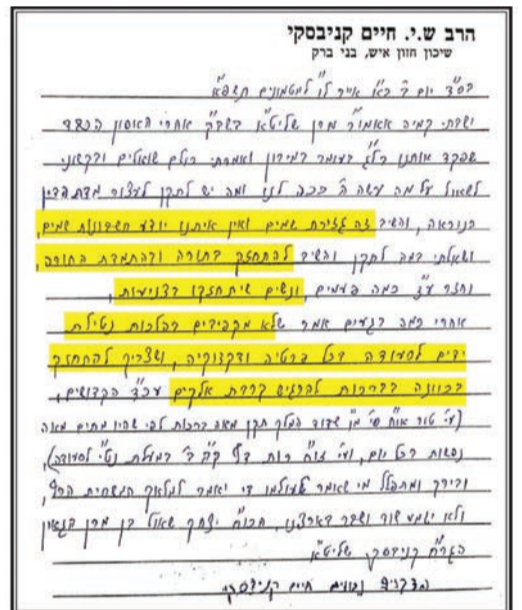 הרב ש.י. חיים קניבסקי
שיכון חזון איש, בני ברק
בס"ד יום ב' כ"א אייר ל"ו למטמונים תשפ"א
ישבתי קמיה אאמו"ר מרן שליט"א בשב"ק אחרי האסון הכבד
שפקד אותנו בל"ג בעומר במירון ואמרתי כולם שואלים ובקשוני
לשאול על מה עשה ה' ככה לנו ומה יש לתקן לעצור מדת הדין
הנוראה, והשיב זה גזירת שמים ואין איתנו יודע חשבונות שמים,
ושאלתי במה לתקן והשיב להתחזק בתורה ובהתמדת התורה,
וחזר ע"ז כמה פעמים, ונשים שיתחזקו בצניעות,
אחרי כמה רגעים אמר שלא מקפידים בהלכות נטילת
ידים לסעודה בכל פרטיה ודקדוקיה, ושצריך להתחזק
בכוונה בברכות להרגיש קרבת אלקים עכ"ד הקדושים,
(עי' טור או"ח סי' מ"ו שדוד המלך תקן מאה ברכות לפי שהיו מתים מאה
נפשות בכל יום, ועי' זוה"ח רות דף ק"ב במעלת נט"י לסעודה),
ובירך ומתפלל מי שאמר לעולמו די יאמר למלאך המשחית הרף,
ולא ישמע שוד ושבר בארצנו, הכו"ח יצחק שאול בן מרן הגאון
הגר"ח קניבסקי שליט"א
הדברים נכונים חיים קניבסקי